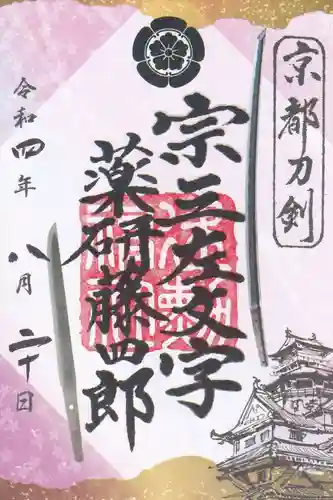 京都刀剣
宗三左文字
薬研藤四郎
令和四年
八月二十日